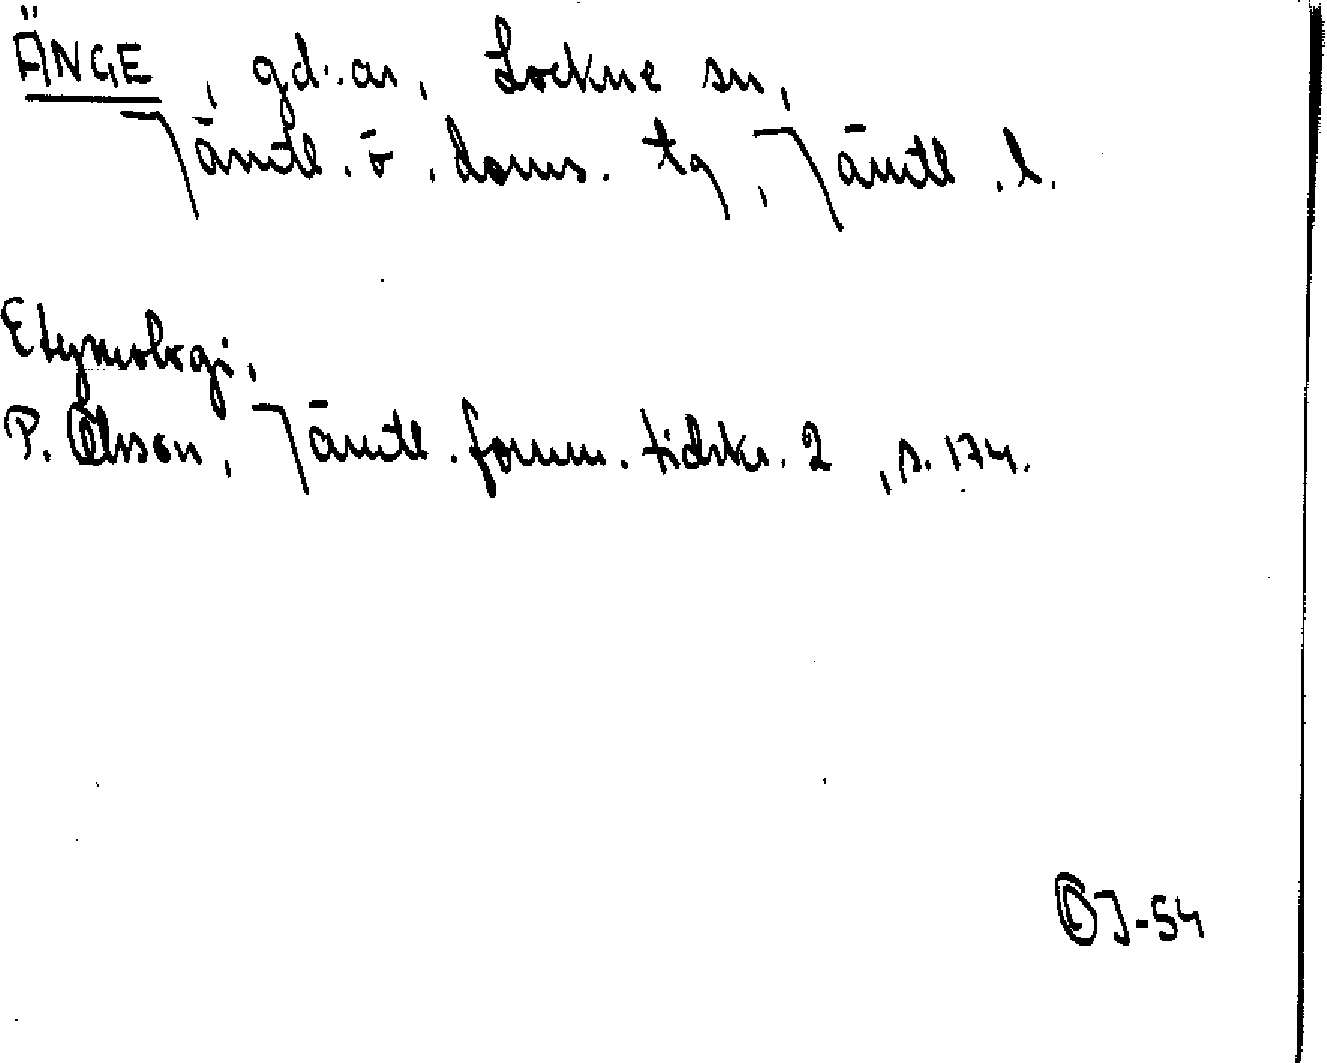 ÄNGE, gd:ar, Lockne sn,
Jämtl. ö. doms. tg, Jämtl. l.
Etymologi,
P. Olsson, Jämtl. fornm. tidskr. 2, s. 174.
OJ-54